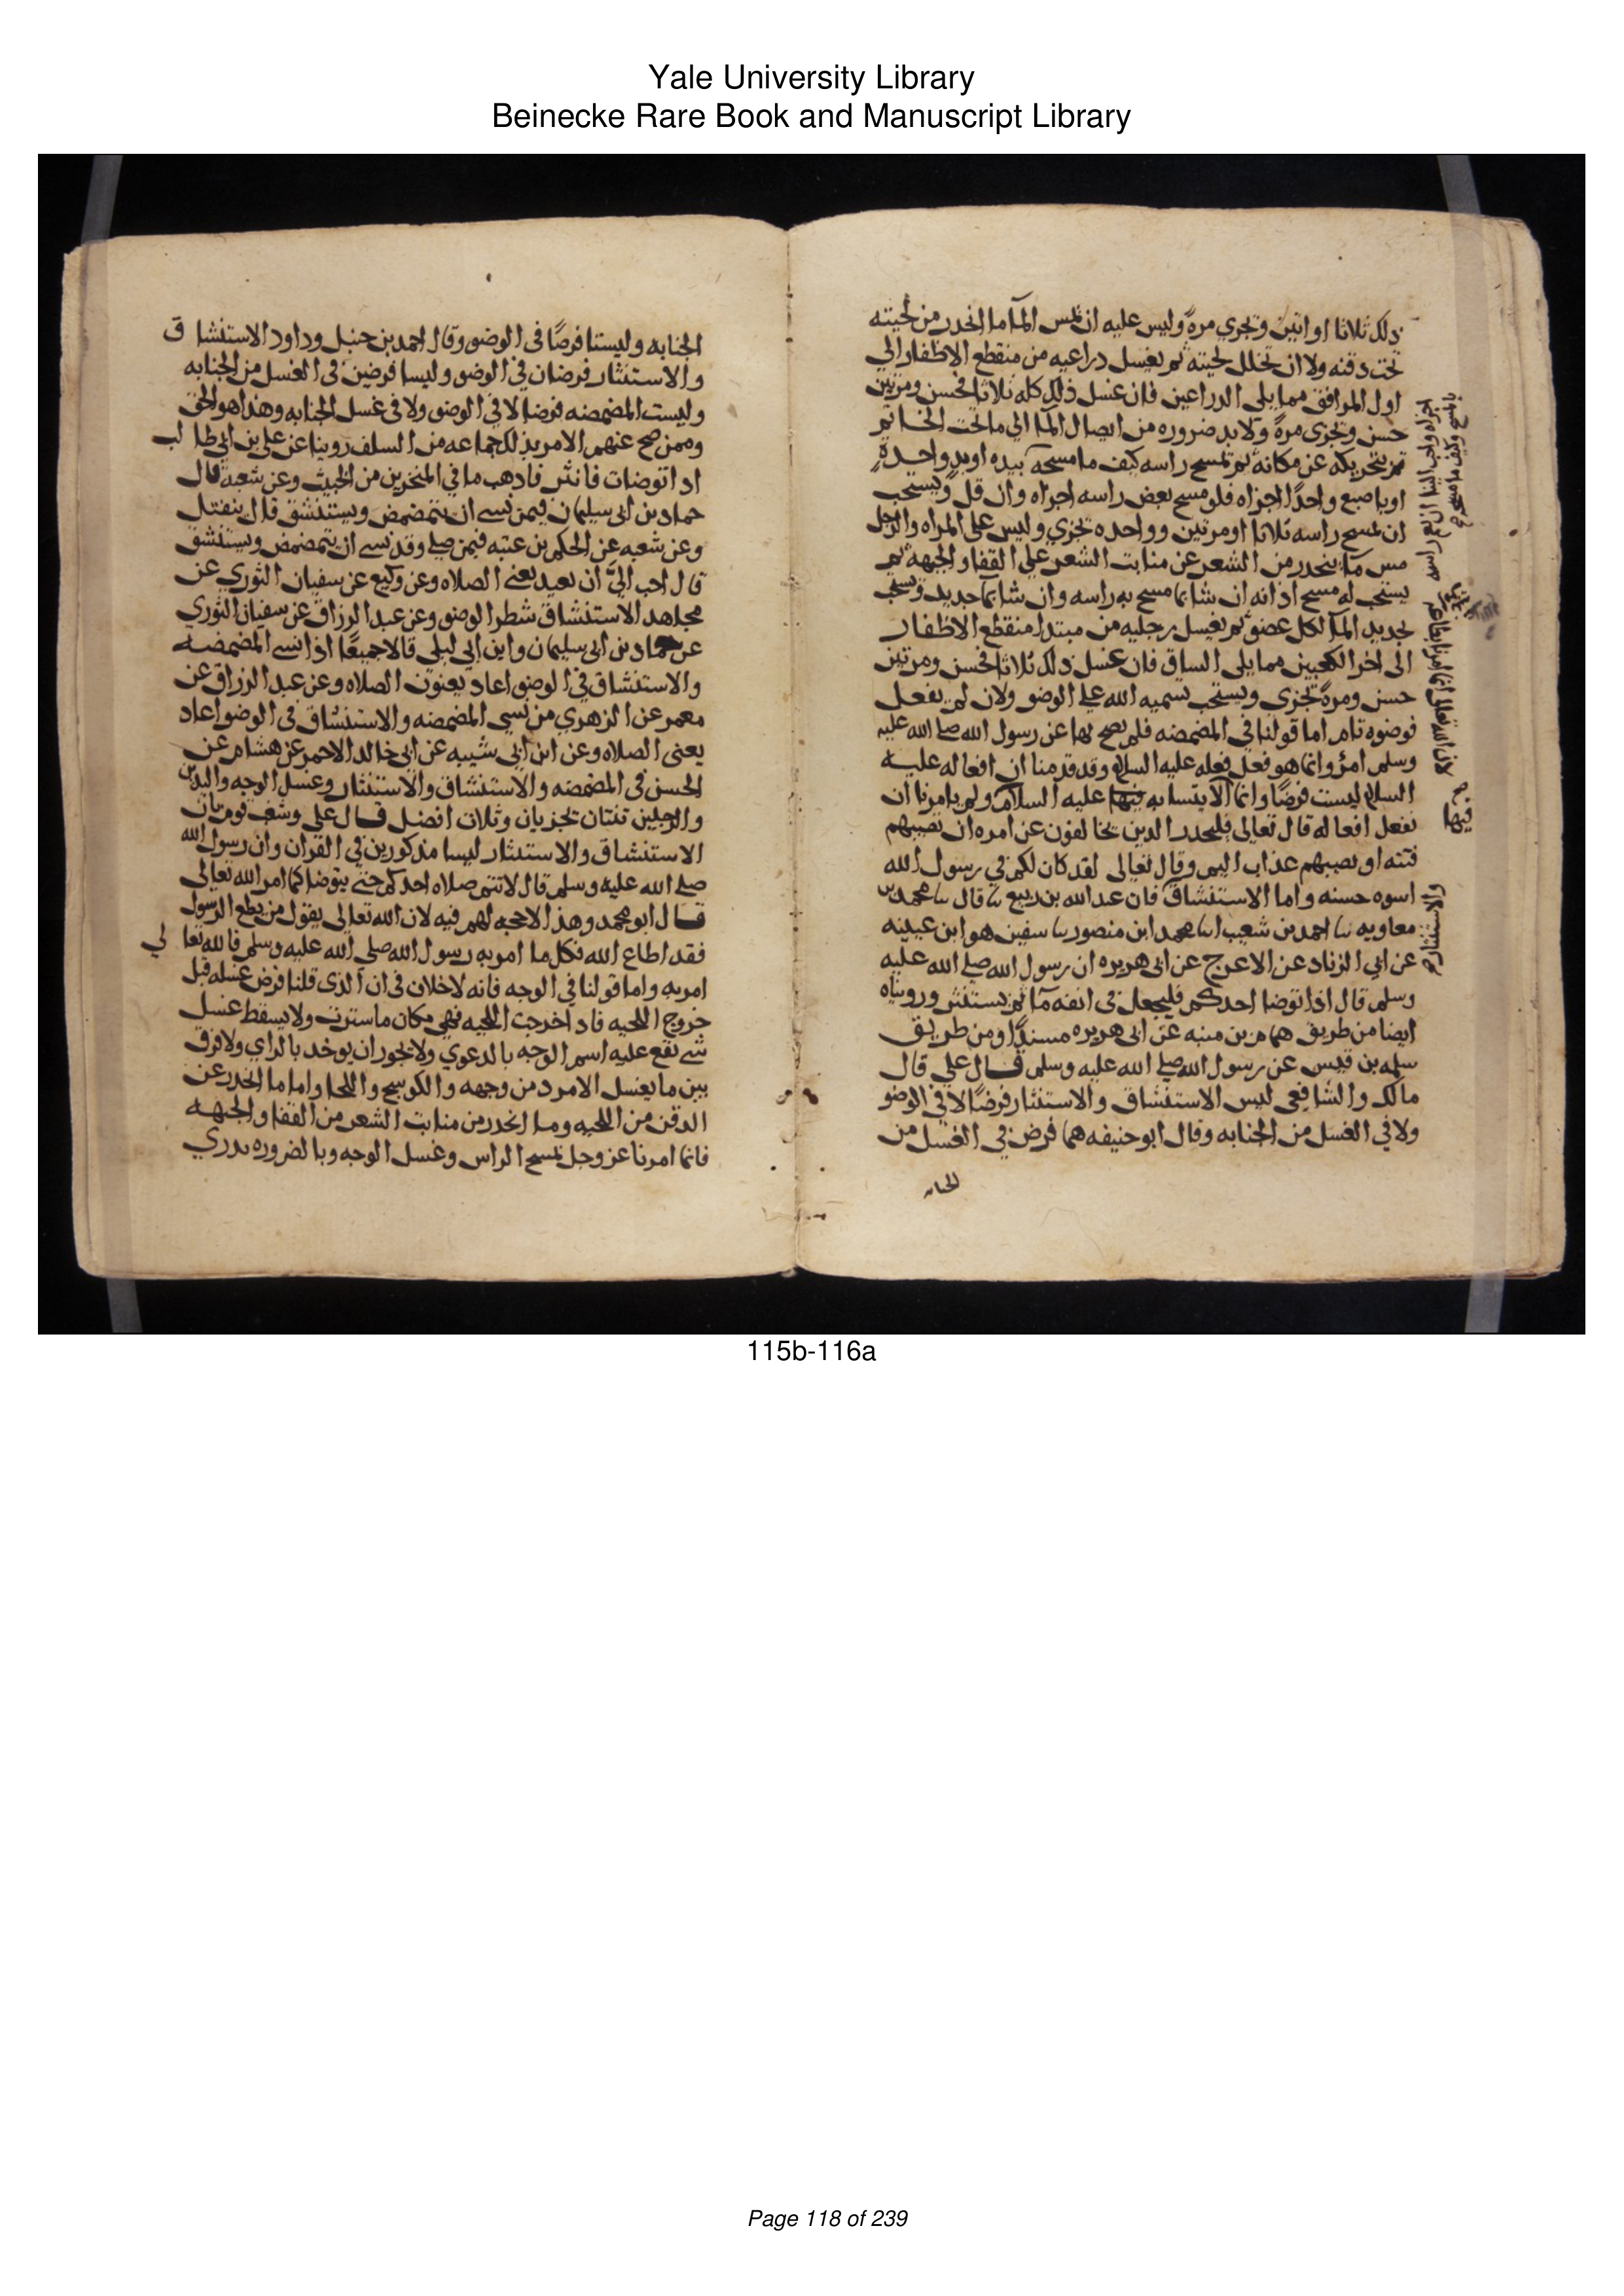 Yale University Library
Beinecke Rare Book and Manuscript Library
ذلك ثلاثا او اثنين وتجزي مرة وليس عليه ان يمس الما ما انحدر من لحيته
تحت دقنه ولا ان يخلل لحيته ثم يغسل دراعيه من منقطع الاظفار الي
اول المرافق مما يلي الدراعين فان غسل ذلك كله ثلاثا فحسن ومرتين
حسن وتجزي مرة ولا بد ضروره من ايصال الما الي ما تحت الخاتم
بتحريكه عن مكانه ثم يمسح راسه كيف ما مسحه بيده او بيد واحدة
او باصبع واحدا اجزاه فلو مسح بعض راسه اجزاه وان قل ويستحب
ان يمسح راسه ثلاثا او مرتين وواحده تجزي وليس علي المراه والرجل
مس ما ينحدر من الشعر عن منابت الشعر علي القفا والجبهه ثم
يستحب له مسح ادانه ان شا بما مسح به راسه وان شا بما جديد ويستحب
تجديد الما لكل عضو ثم يغسل رجليه من مبتدا منقطع الاظفار
الى اخر الكعبين مما يلي الساق فان غسل ذلك ثلاثا فحسن ومرتين
حسن ومرة تجزى ويستحب تسميه الله على الوضو ولان لم يفعل
فوضوه تام اما قولنا في المضمضه فلم يصح بها عن رسول الله صلى الله عليه
وسلم امر وانما هو فعل فعله عليه السلام وقد قدمنا ان افعاله عليه
السلام ليست فرضا وانما الايتسا به فيها عليه السلام ولم يامرنا ان
نفعل افعاله قال تعالى فليحدر الدين يخالفون عن امره ان تصيبهم
فتنه او يصيبهم عذاب اليم وقال تعالى لقد كان لكم في رسول الله
اسوه حسنه واما الاستنشاق فان عبد الله بن ربيع نا قال نا محمد بن
معاويه نا احمد بن شعيب انا محمد ابن منصور نا سفين هو ابن عيينه
عن ابي الزناد عن الاعرج عن ابى هريره ان رسول الله صلى الله عليه
وسلم قال اذا توضا احدكم فليجعل في انفه ما ثم يستنثر ورويناه
ايضا من طريق همام بن منبه عن ابى هريره مسندا ومن طريق
سلمه بن قيس عن رسول الله صلى الله عليه وسلم قال علي قال
مالك والشافعى ليس الاستنشاق والاستنثار فرضا لا في الوضو
ولا في الغسل من الجنابه وقال ابو حنيفه هما فرض في الغسل من
الجنابه
لان الله تعالى انما امرنا
فيها
والاستنثار
الجنابه وليستا فرضا في الوضو وقال احمد بن حنبل وداود الاستنشاق
والاستنثار فرضان في الوضو وليسا فرضين في الغسل من الجنابه
وليست المضمضه فرضا لا في الوضو ولا في غسل الجنابه وهذا هو الحق
وممن صح عنهم الامر بذلك جماعه من السلف روينا عن علي بن ابي طالب
ادا توضات فانثر فادهب ما في المنخرين من الخبث وعن شعبه قال
حماد بن ابى سليمان فيمن نسي ان يتمضمض ويستنشق قال ينفتل
وعن شعبه عن الحكم بن عتبه فيمن صلى وقد نسي ان يتمضمض ويستنشق
قال احب الي ان يعيد يعني الصلاه وعن وكيع عن سفيان الثوري عن
مجاهد الاستنشاق شطر الوضو وعن عبد الرزاق عن سفيان الثوري
عن حماد بن ابى سليمان وابن ابي ليلى قالا جميعا اذا نسي المضمضه
والاستنشاق في الوضو اعاد يعنون الصلاه وعن عبد الرزاق عن
معمر عن الزهري من نسي المضمضه والاستنشاق في الوضو اعاد
يعنى الصلاه وعن ابن ابي شيبه عن ابى خالد الاحمر عن هشام عن
الحسن في المضمضه والاستنشاق والاستنثار وغسل الوجه واليدين
والرجلين ثنتان تجزيان وثلاث افضل قال علي وشغب قوم بان
الاستنشاق والاستنثار ليسا مذكورين في القران وان رسول الله
صلى الله عليه وسلم قال لا تتم صلاه احدكم حتى يتوضا كما امر الله تعالى
قال ابو محمد وهذا لا حجه لهم فيه لان الله تعالى يقول من يطع الرسول
فقد اطاع الله فكل ما امر به رسول الله صلى الله عليه وسلم فالله تعالي
امر به واما قولنا في الوجه فانه لا خلاف في ان الذى قلنا فرض غسله قبل
خروج اللحيه فاد اخرجت اللحيه فهي مكان ما سترت ولا يسقط غسل
شي يقع عليه اسم الوجه بالدعوي ولا يجوز ان يوخد بالراي ولا فرق
بين ما يغسل الامرد من وجهه والكوسج واللحا واما ما انحدر عن
الدقن من اللحيه وما انحدر من منابت الشعر من القفا والجبهه
فانما امرنا عز وجل بمسح الراس وغسل الوجه وبالضروره يدري
115b-116a
Page 118 of 239